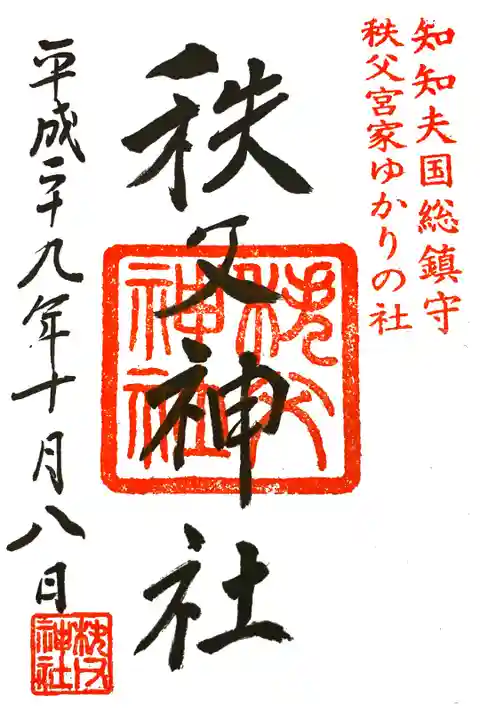 知知夫国総鎮守
秩父宮家ゆかりの社
秩父神社
秩父神社
平成二十九年十月八日
秩父神社